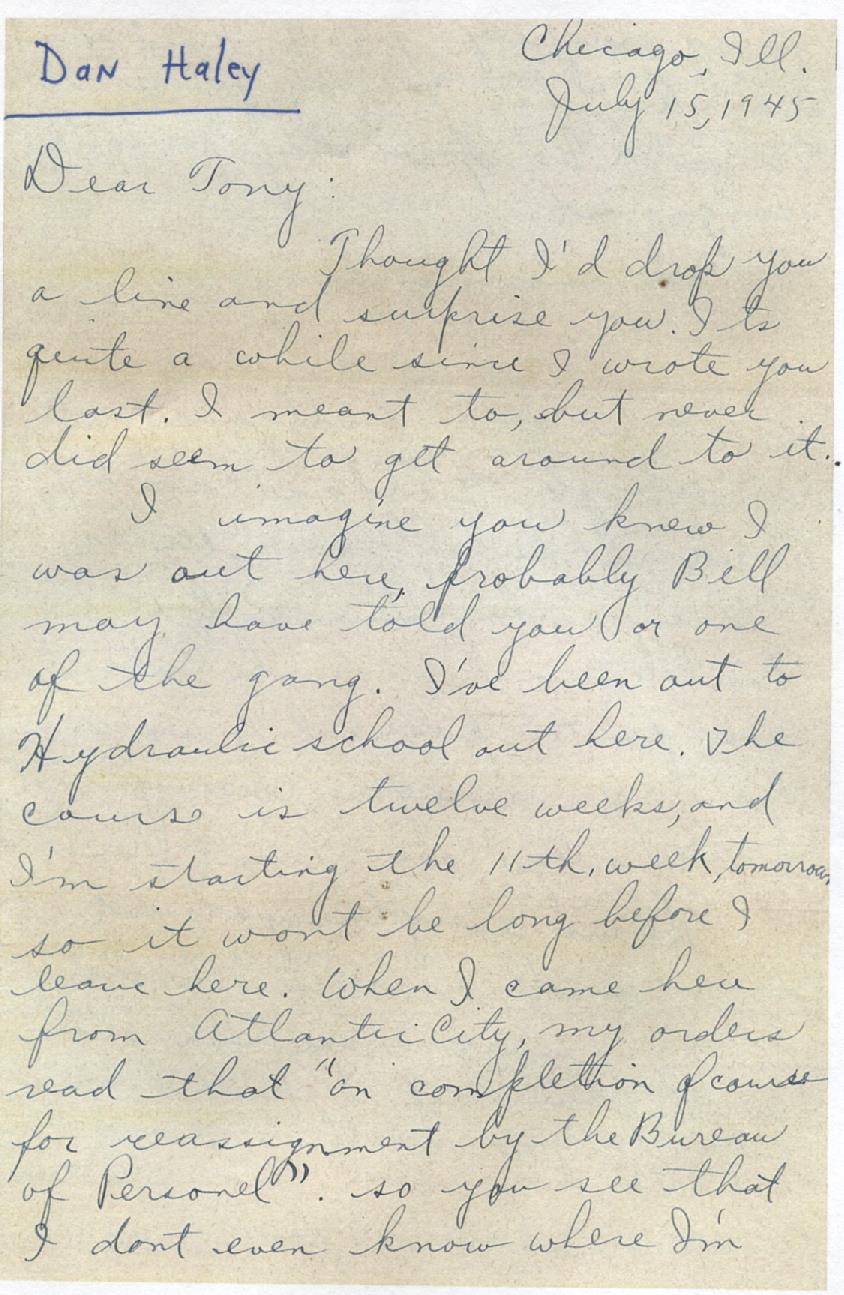 Dan Haley
Chicago, Ill.
July 15, 1945
Dear Tony:
Thought I'd drop you
a line and surprise you. Its
quite a while since I wrote you
last. I meant to, but never
did seem to get around to it.
I imagine you knew I
was out here, probably Bill
may have told you or one
of the gang. I've been out to
Hydraulic school out here. The
course is twelve weeks, and
I'm starting the 11th, week, tomorrow,
so it wont be long before I
leave here. When I came here
from Atlantic City, my orders
read that "on completion of course
for reassignment by the Bureau
of Personel". so you see that
I dont even know where I'm